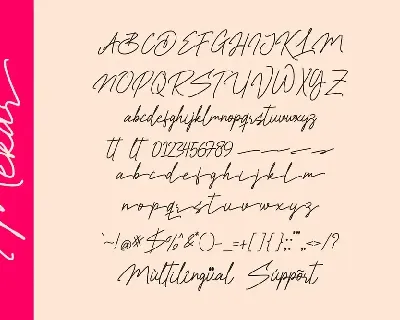 Mekar
ABCDEFGHIJKLM
NOPQRSTUVWXYZ
abcdefghijklmnopqrstuvwxyz
tt lt 0123456789
a-b-c-d-e-f-g-h-i-j-k-l-m-
n-o-p-q-r-s-t-u-v-w-x-y-z
`~!@#$%^&*()-_=+[]{};:'",.<>/?
Mùltilingüal Súppõrt